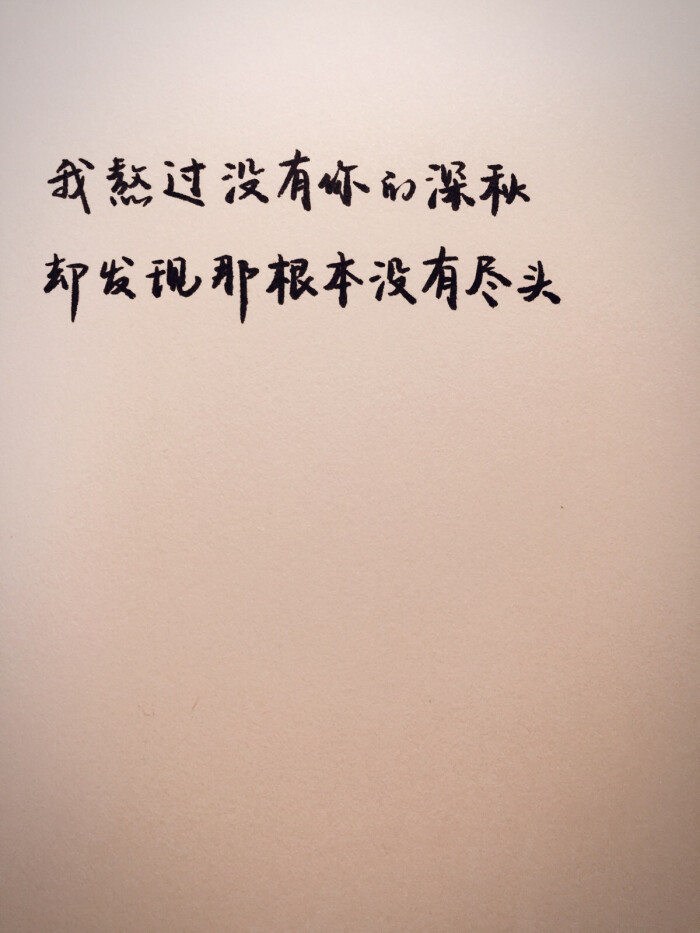 我熬过没有你的深秋
却发现那根本没有尽头